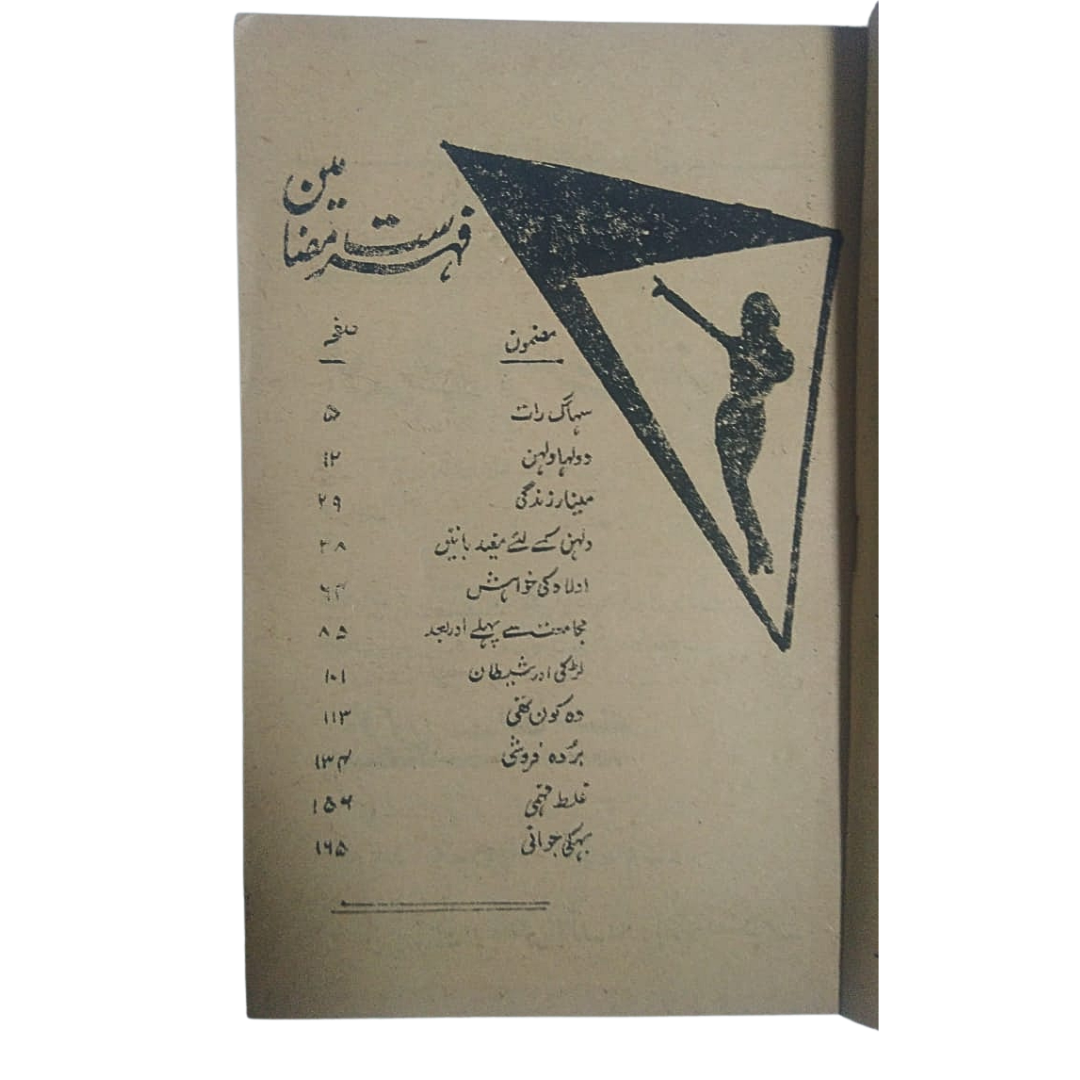 فہرست مضامین
مضمون صفحہ
سہاگ رات ۵
دولہا دلہن ۱۲
مینار زندگی ۲۹
دلہن کے لئے مفید باتیں ۳۸
اولاد کی خواہش ۶۴
مجامعت سے پہلے اور بعد ۸۵
لڑکی اور شیطان ۱۰۱
وہ کون تھی ۱۱۳
بردہ فروشی ۱۳۴
غلط فہمی ۱۵۶
بہکی جوانی ۱۶۵